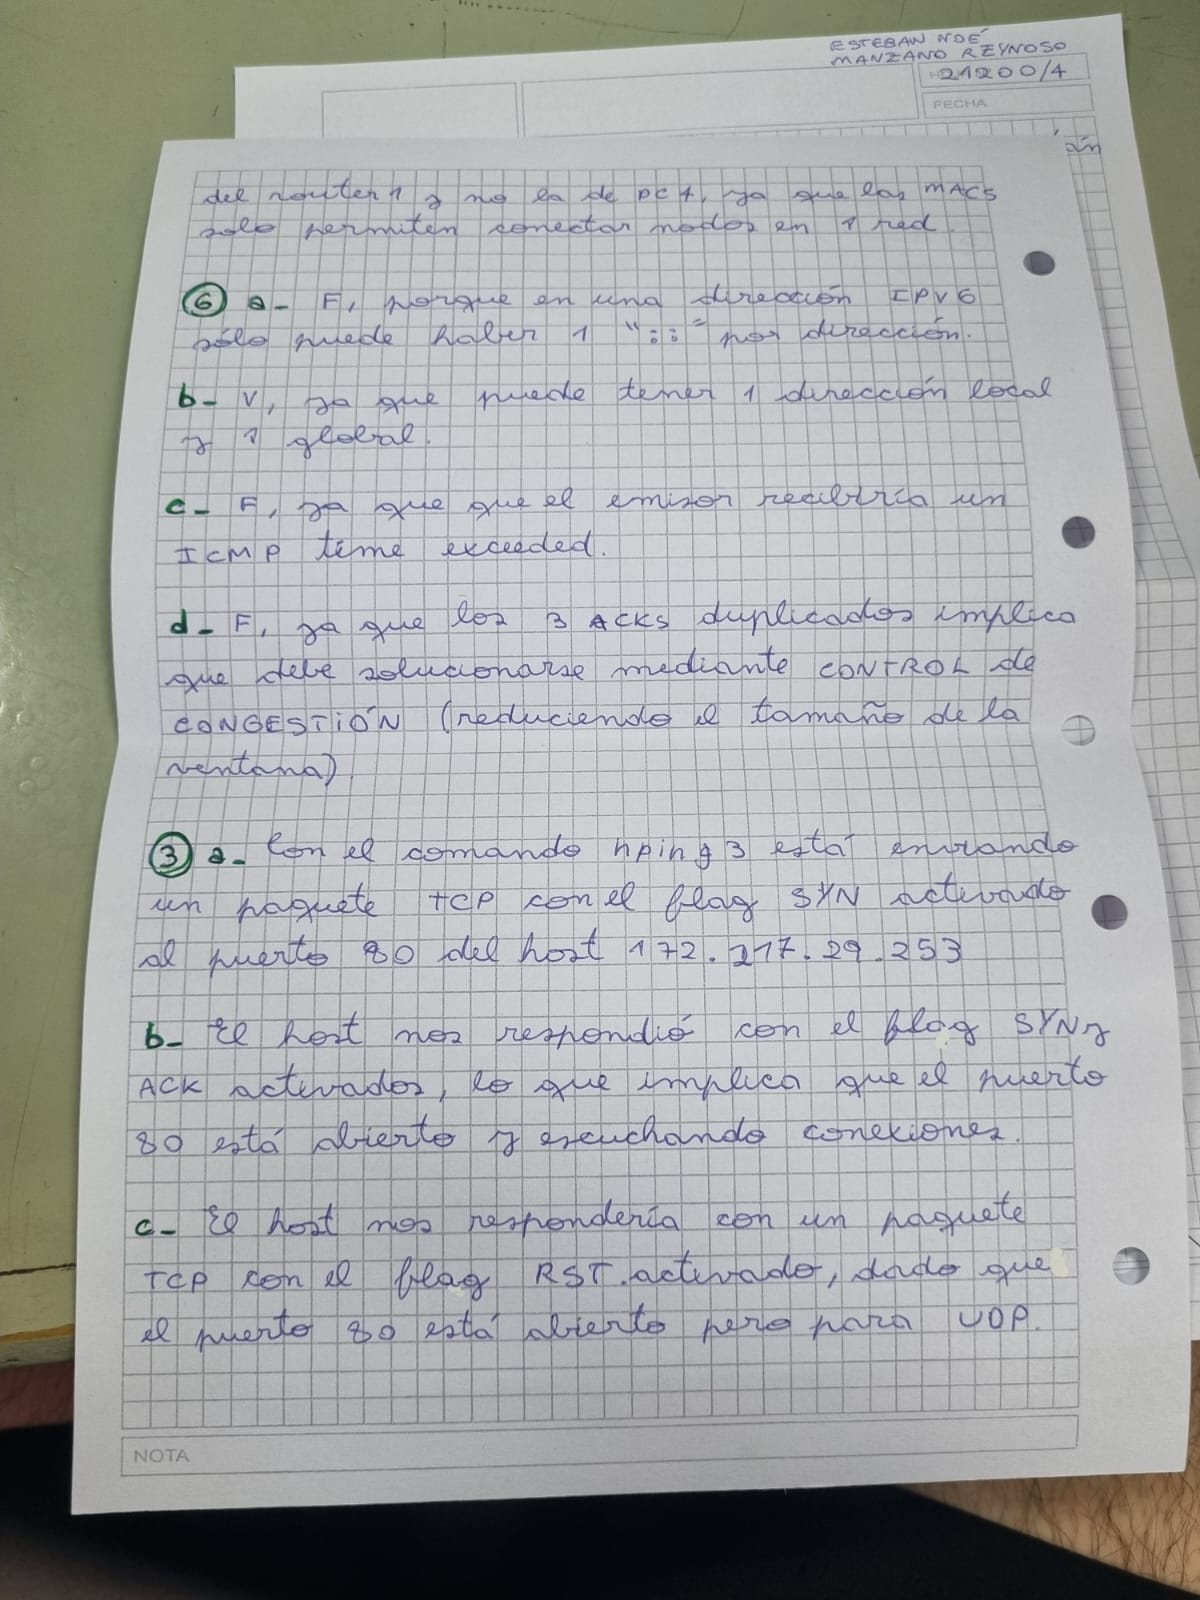 ESTEBAN NOÉ
MANZANO REYNOSO
21200/4
FECHA
del router 1 y no la de PC1, ya que las MACS
solo permiten conectar nodos en 1 red.
6 a- F, porque en una dirección IPV6
sólo puede haber 1 "::" por dirección.
b- V, ya que puede tener 1 dirección local
y 1 global.
c- F, ya que que el emisor recibiría un
ICMP time exceeded.
d- F, ya que los 3 ACKS duplicados implica
que debe solucionarse mediante CONTROL de
CONGESTIÓN (reduciendo el tamaño de la
ventana)
3 a- Con el comando hping3 está enviando
un paquete TCP con el flag SYN activado
al puerto 80 del host 172.217.29.253
b- El host nos respondió con el flag SYN y
ACK activados, lo que implica que el puerto
80 está abierto y escuchando conexiones.
c- El host nos respondería con un paquete
TCP con el flag RST activado, dado que
el puerto 80 está abierto pero para UDP.
NOTA